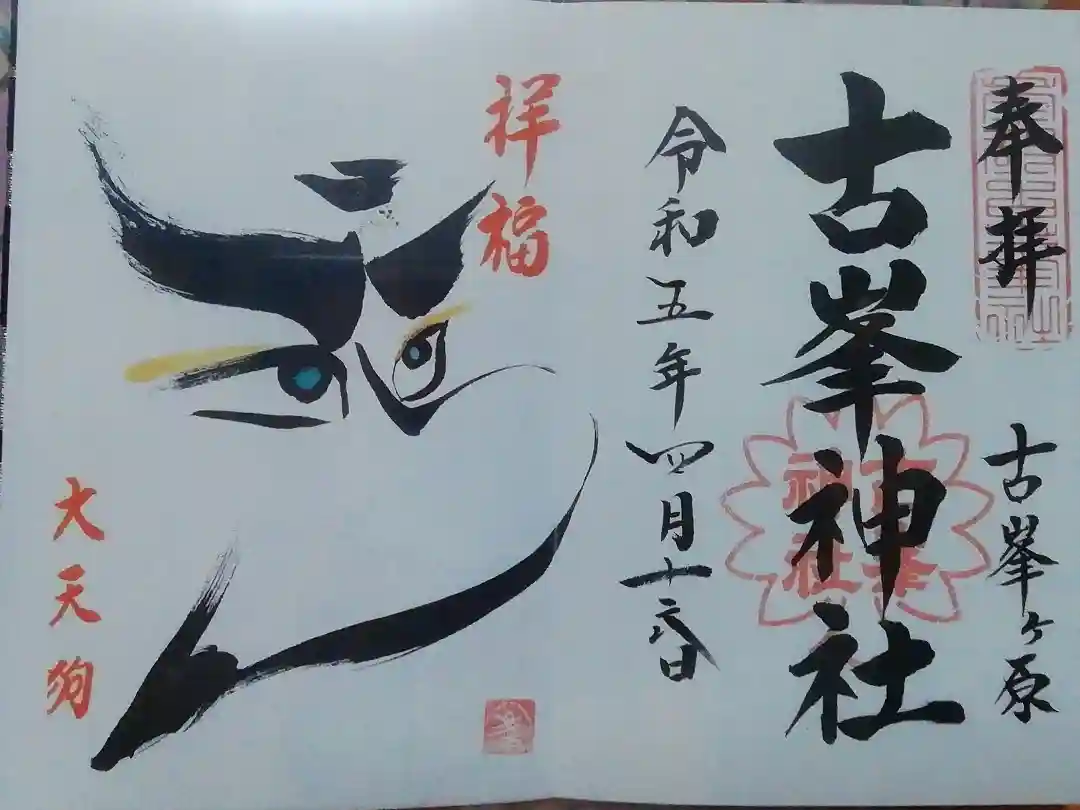 奉拝
古峯ヶ原
古峯神社
古峯
神社
令和五年四月十六日
祥福
大天狗